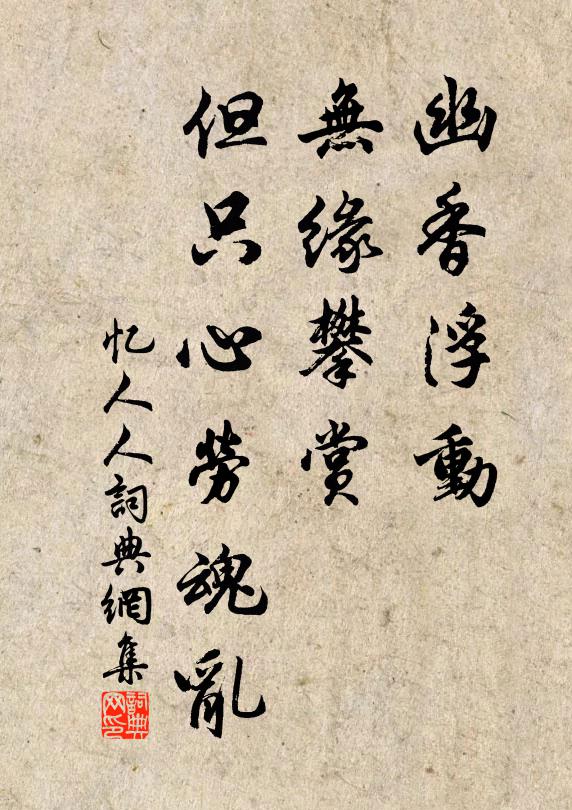 幽香浮動
無緣攀賞
但只心勞魂亂
忆人人詞典網集
詞典
网印